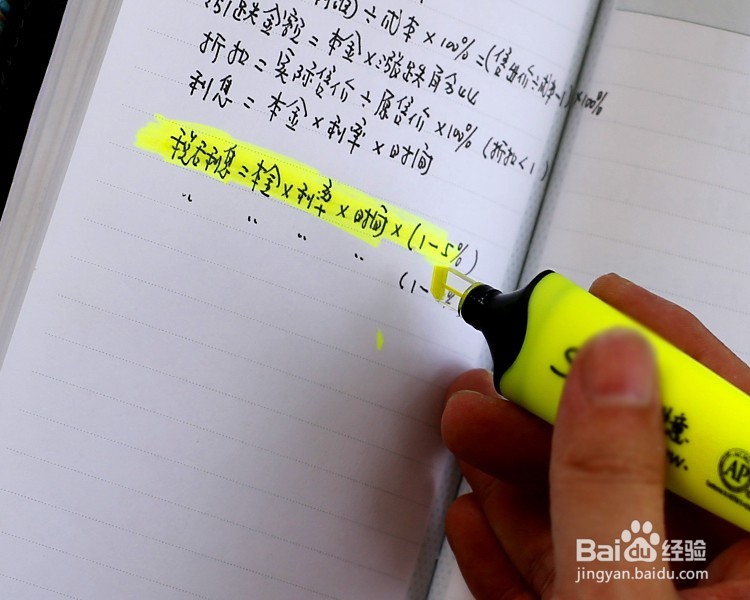 ÷成本×100%=(售出价÷成本-1)×100%
涨跌金额=本金×涨跌百分比
折扣=实际售价÷原售价×100%(折扣<1)
利息=本金×利率×时间
税后利息=本金×利率×时间×(1-5%)
〃 〃 〃 〃
(1-
Baidu经验
jingyan.baidu.com